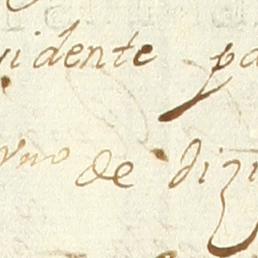 vidente pa
rno de diz